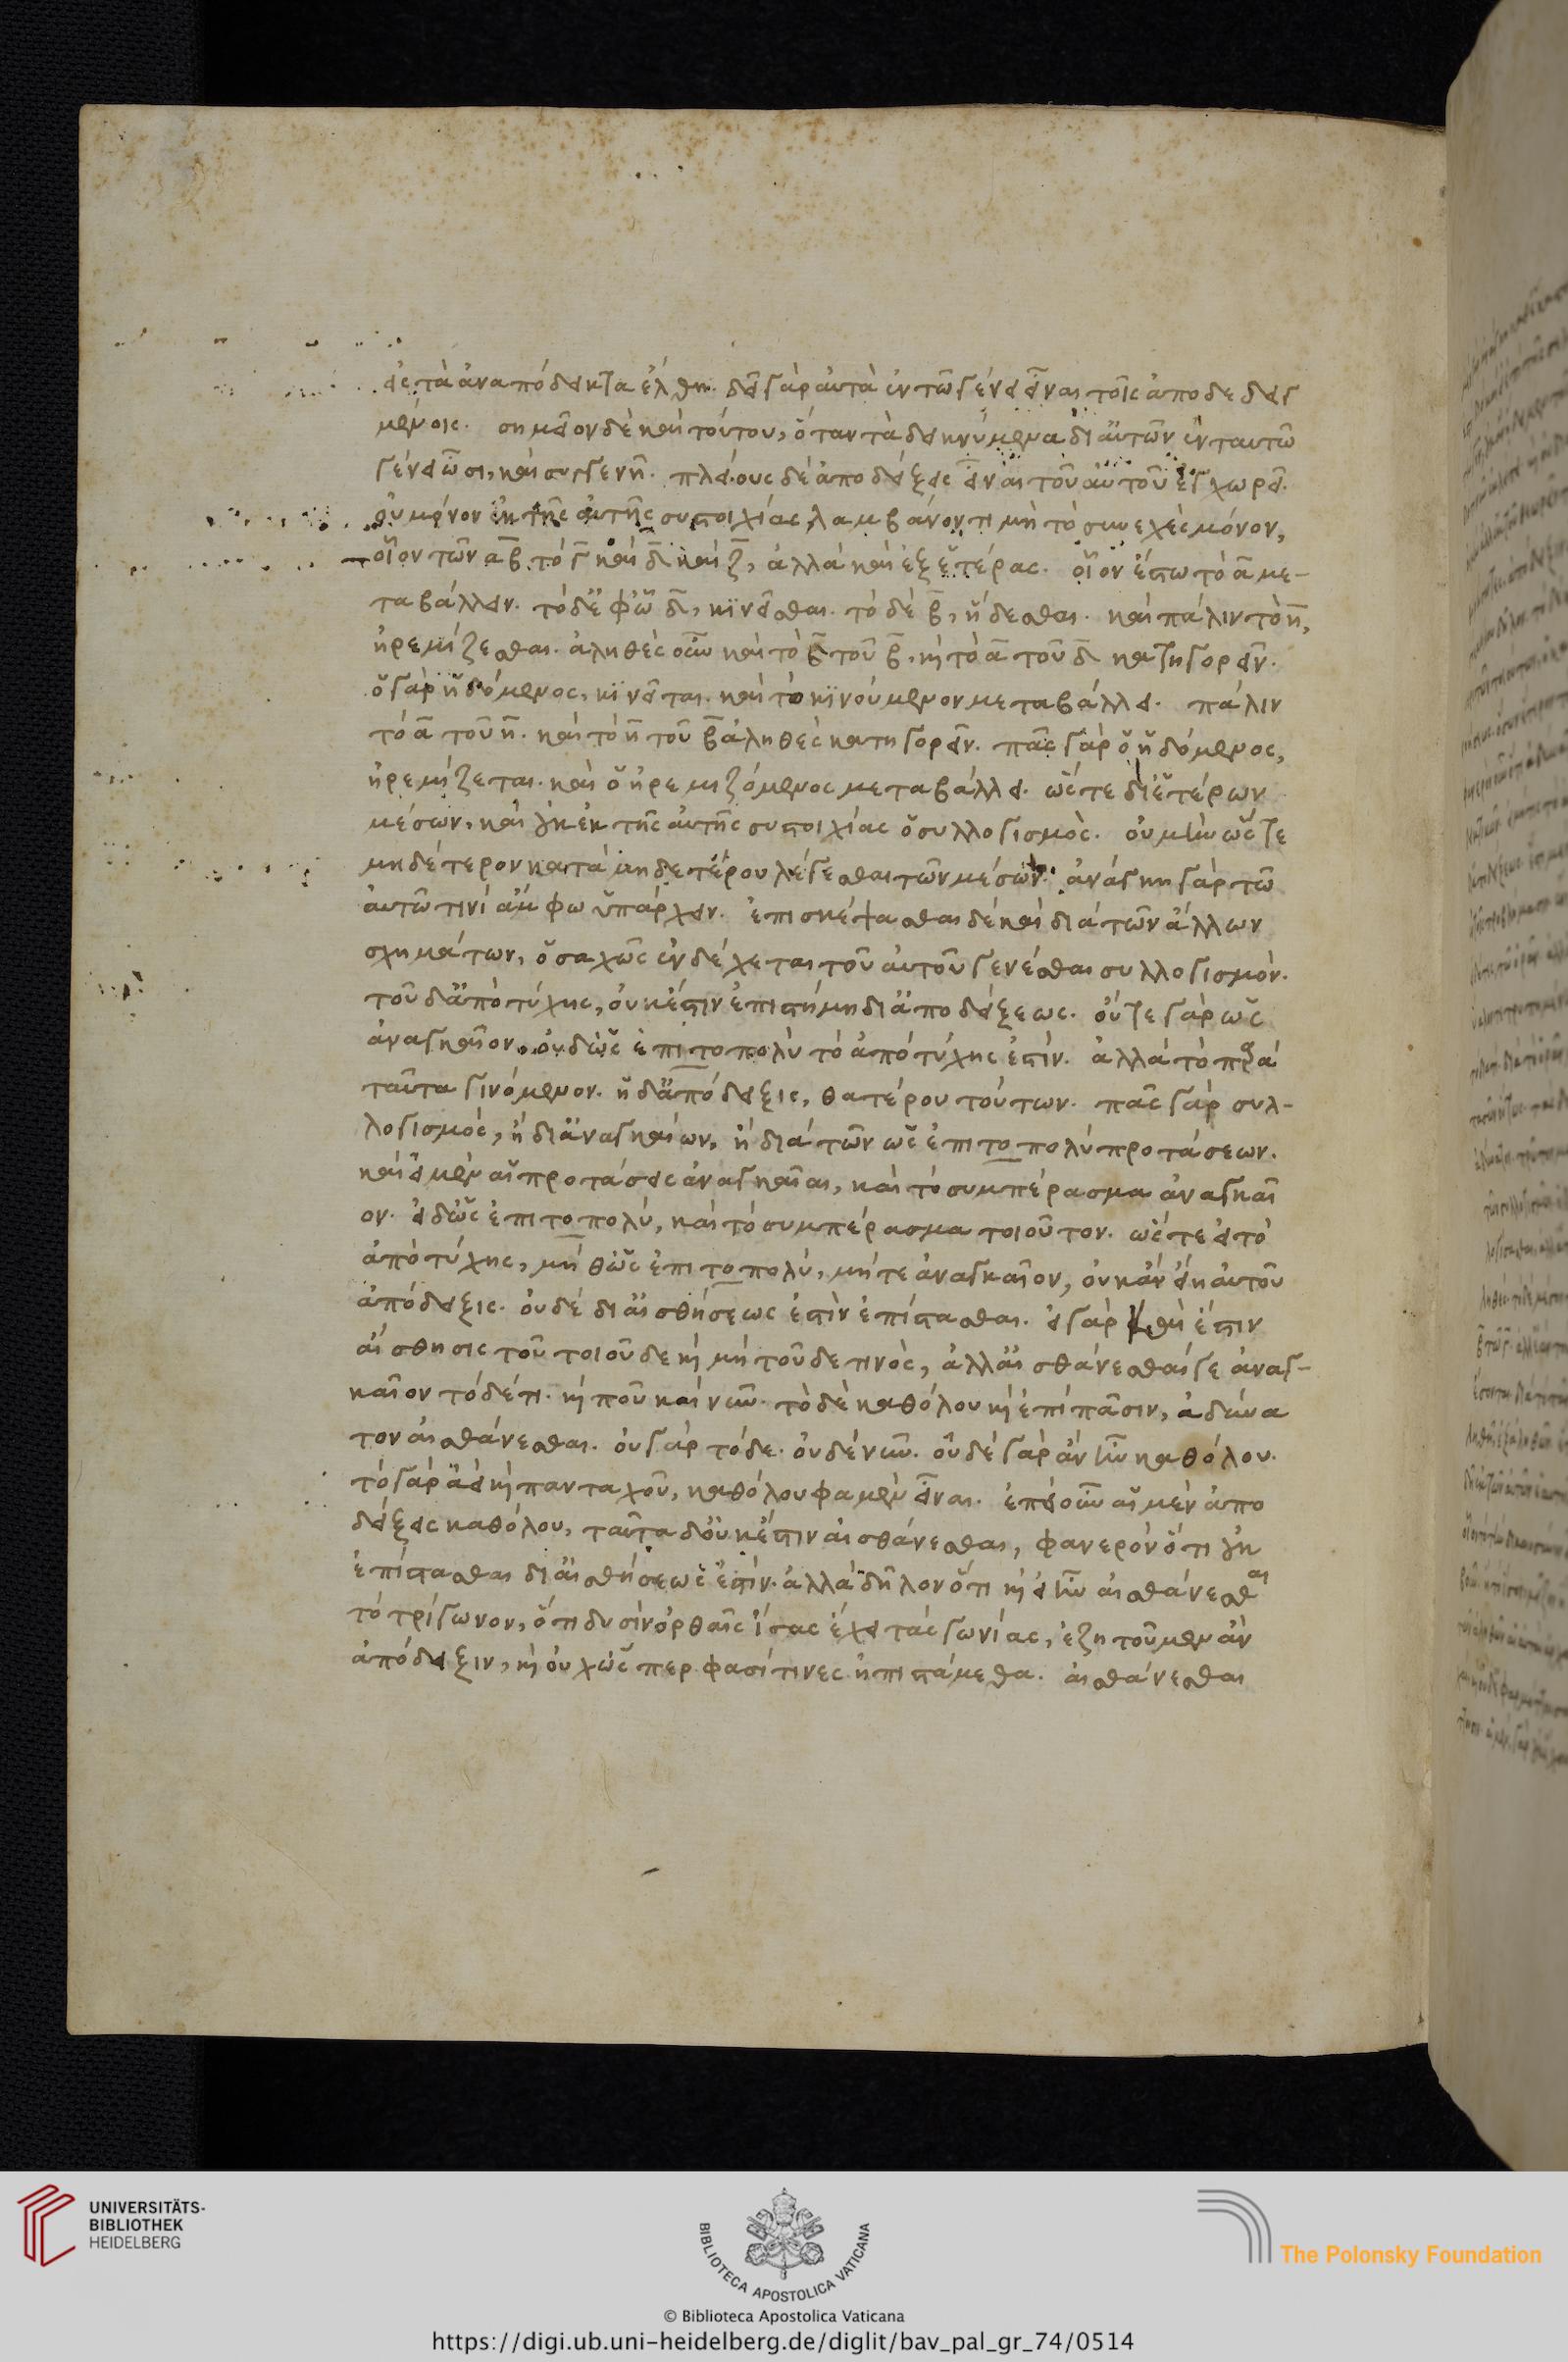 εἰς τὰ ἀναπόδεικτα ἔλθῃ. δεῖ γὰρ αὐτὰ ἐν τῶ γένει εἶναι τοῖς ἀποδεδειγ
μένοις. σημεῖον δὲ καὶ τούτου, ὅταν τὰ δεικνύμενα δι ἁυτῶν ἐν ταυτῶ
γένει ὦσι, καὶ συγγενῆ. πλείους δὲ ἀποδείξεις εἶναι τοῦ αὐτοῦ ἐγχωρεῖ.
οὐ μόνον ἐκ τῆς αὐτῆς συστοιχίας λαμβάνοντι μὴ τὸ συνεχὲς μόνον,
οἷον τῶν α β τὸ γ καὶ δ καὶ ζ, ἀλλὰ καὶ ἐξ ἑτέρας. οἷον ἔστω τὸ α με-
ταβάλλειν. τὸ δ ἐφ ὧ δ, κϊνεῖσθαι. τὸ δὲ β, ἥδεσθαι. καὶ πάλιν τὸ η,
ἠρεμίζεσθαι. ἀληθὲς οὖν καὶ τὸ δ τοῦ β, κὶ τὸ α τοῦ δ κατηγορεῖν.
ὁ γὰρ ἡδόμενος, κϊνεῖται. καὶ τὸ κϊνούμενον μεταβάλλει. πάλιν
τὸ α τοῦ η. καὶ τὸ η τοῦ β ἀληθὲς κατηγορεῖν. πᾶς γὰρ ὁ ἡδόμενος,
ἠρεμίζεται. καὶ ὁ ἠρεμιζόμενος μεταβάλλει. ὥστε δι ἑτέρων
μέσων, καὶ οὐκ ἐκ τῆς αὐτῆς συστοιχίας ὁ συλλογισμὸς. οὐ μὴν ὥστε
μηδέτερον κατὰ μηδετέρου λέγεσθαι τῶν μέσων. ἀνάγκη γὰρ τῶ
αὐτῶ τινὶ ἄμφω ὑπάρχειν. ἐπισκέψασθαι δὲ καὶ διὰ τῶν ἄλλων
σχημάτων, ὁσαχῶς ἐνδέχεται τοῦ αὐτοῦ γενέσθαι συλλογισμὸν.
τοῦ δ ἀπὸ τύχης, οὐκ ἔστιν ἐπιστήμη δι ἀποδείξεως. οὔτε γὰρ ὡς
ἀναγκαῖον, οὐδ ὡς ἐπιτοπολὺ τὸ ἀπὸ τύχης ἐστὶν. ἀλλὰ τὸ παρὰ
ταῦτα γινόμενον. ἡ δ ἀπόδειξις, θατέρου τούτων. πᾶς γὰρ συλ-
λογισμὸς, ἢ δι ἀναγκαίων, ἢ διὰ τῶν ὡς ἐπιτοπολὺ προτάσεων.
καὶ εἰ μὲν αἱ προτάσεις ἀναγκαῖαι, καὶ τὸ συμπέρασμα ἀναγκαῖ
ον. εἰ δ ὡς ἐπιτοπολὺ, καὶ τὸ συμπέρασμα τοιοῦτον. ὥστε εἰ τὸ
ἀπὸ τύχης, μήθ ὡς ἐπιτοπολὺ, μήτε ἀναγκαῖον, οὐκ ἂν εἴη αὐτοῦ
ἀπόδειξις. οὐδὲ δι αἰσθήσεως ἔστὶν ἐπίστασθαι. εἰ γὰρ καὶ ἔστιν
αἴσθησις τοῦ τοιοῦδε κὶ μὴ τοῦδε τινὸς, ἀλλ αἰσθάνεσθαί γε ἀναγ-
καῖον τόδέ τι. κὶ ποῦ καὶ νῦν. τὸ δὲ καθόλου κὶ ἐπὶ πᾶσιν, ἀδύνα
τον αἰσθάνεσθαι. οὐ γὰρ τόδε. οὐδὲ νῦν. οὐδὲ γὰρ ἂν ἦν καθόλου.
τὸ γὰρ ἀεὶ κὶ πανταχοῦ, καθόλου φαμὲν εἶναι. ἐπεὶ οὖν αἱ μὲν ἀπο
δείξεις καθόλου, ταῦτα δ οὐκ ἔστιν αἰσθάνεσθαι, φανερὸν ὅτι οὐκ
ἐπίστασθαι δι αἰσθήσεως ἔστιν. ἀλλὰ δῆλον ὅτι κὶ εἰ ἦν αἰσθάνεσθαι
τὸ τρίγωνον, ὅτι δυσὶν ὀρθαῖς ἴσας ἔχει τὰς γωνίας, ἐζητοῦμεν ἂν
ἀπόδειξιν, κὶ οὐχ ὥσπερ φασί τινες ἠπιστάμεθα. αἰσθάνεσθαι
UNIVERSITÄTS-
BIBLIOTHEK
HEIDELBERG
BIBLIOTECA APOSTOLICA VATICANA
The Polonsky Foundation
© Biblioteca Apostolica Vaticana
https://digi.ub.uni-heidelberg.de/diglit/bav_pal_gr_74/0514